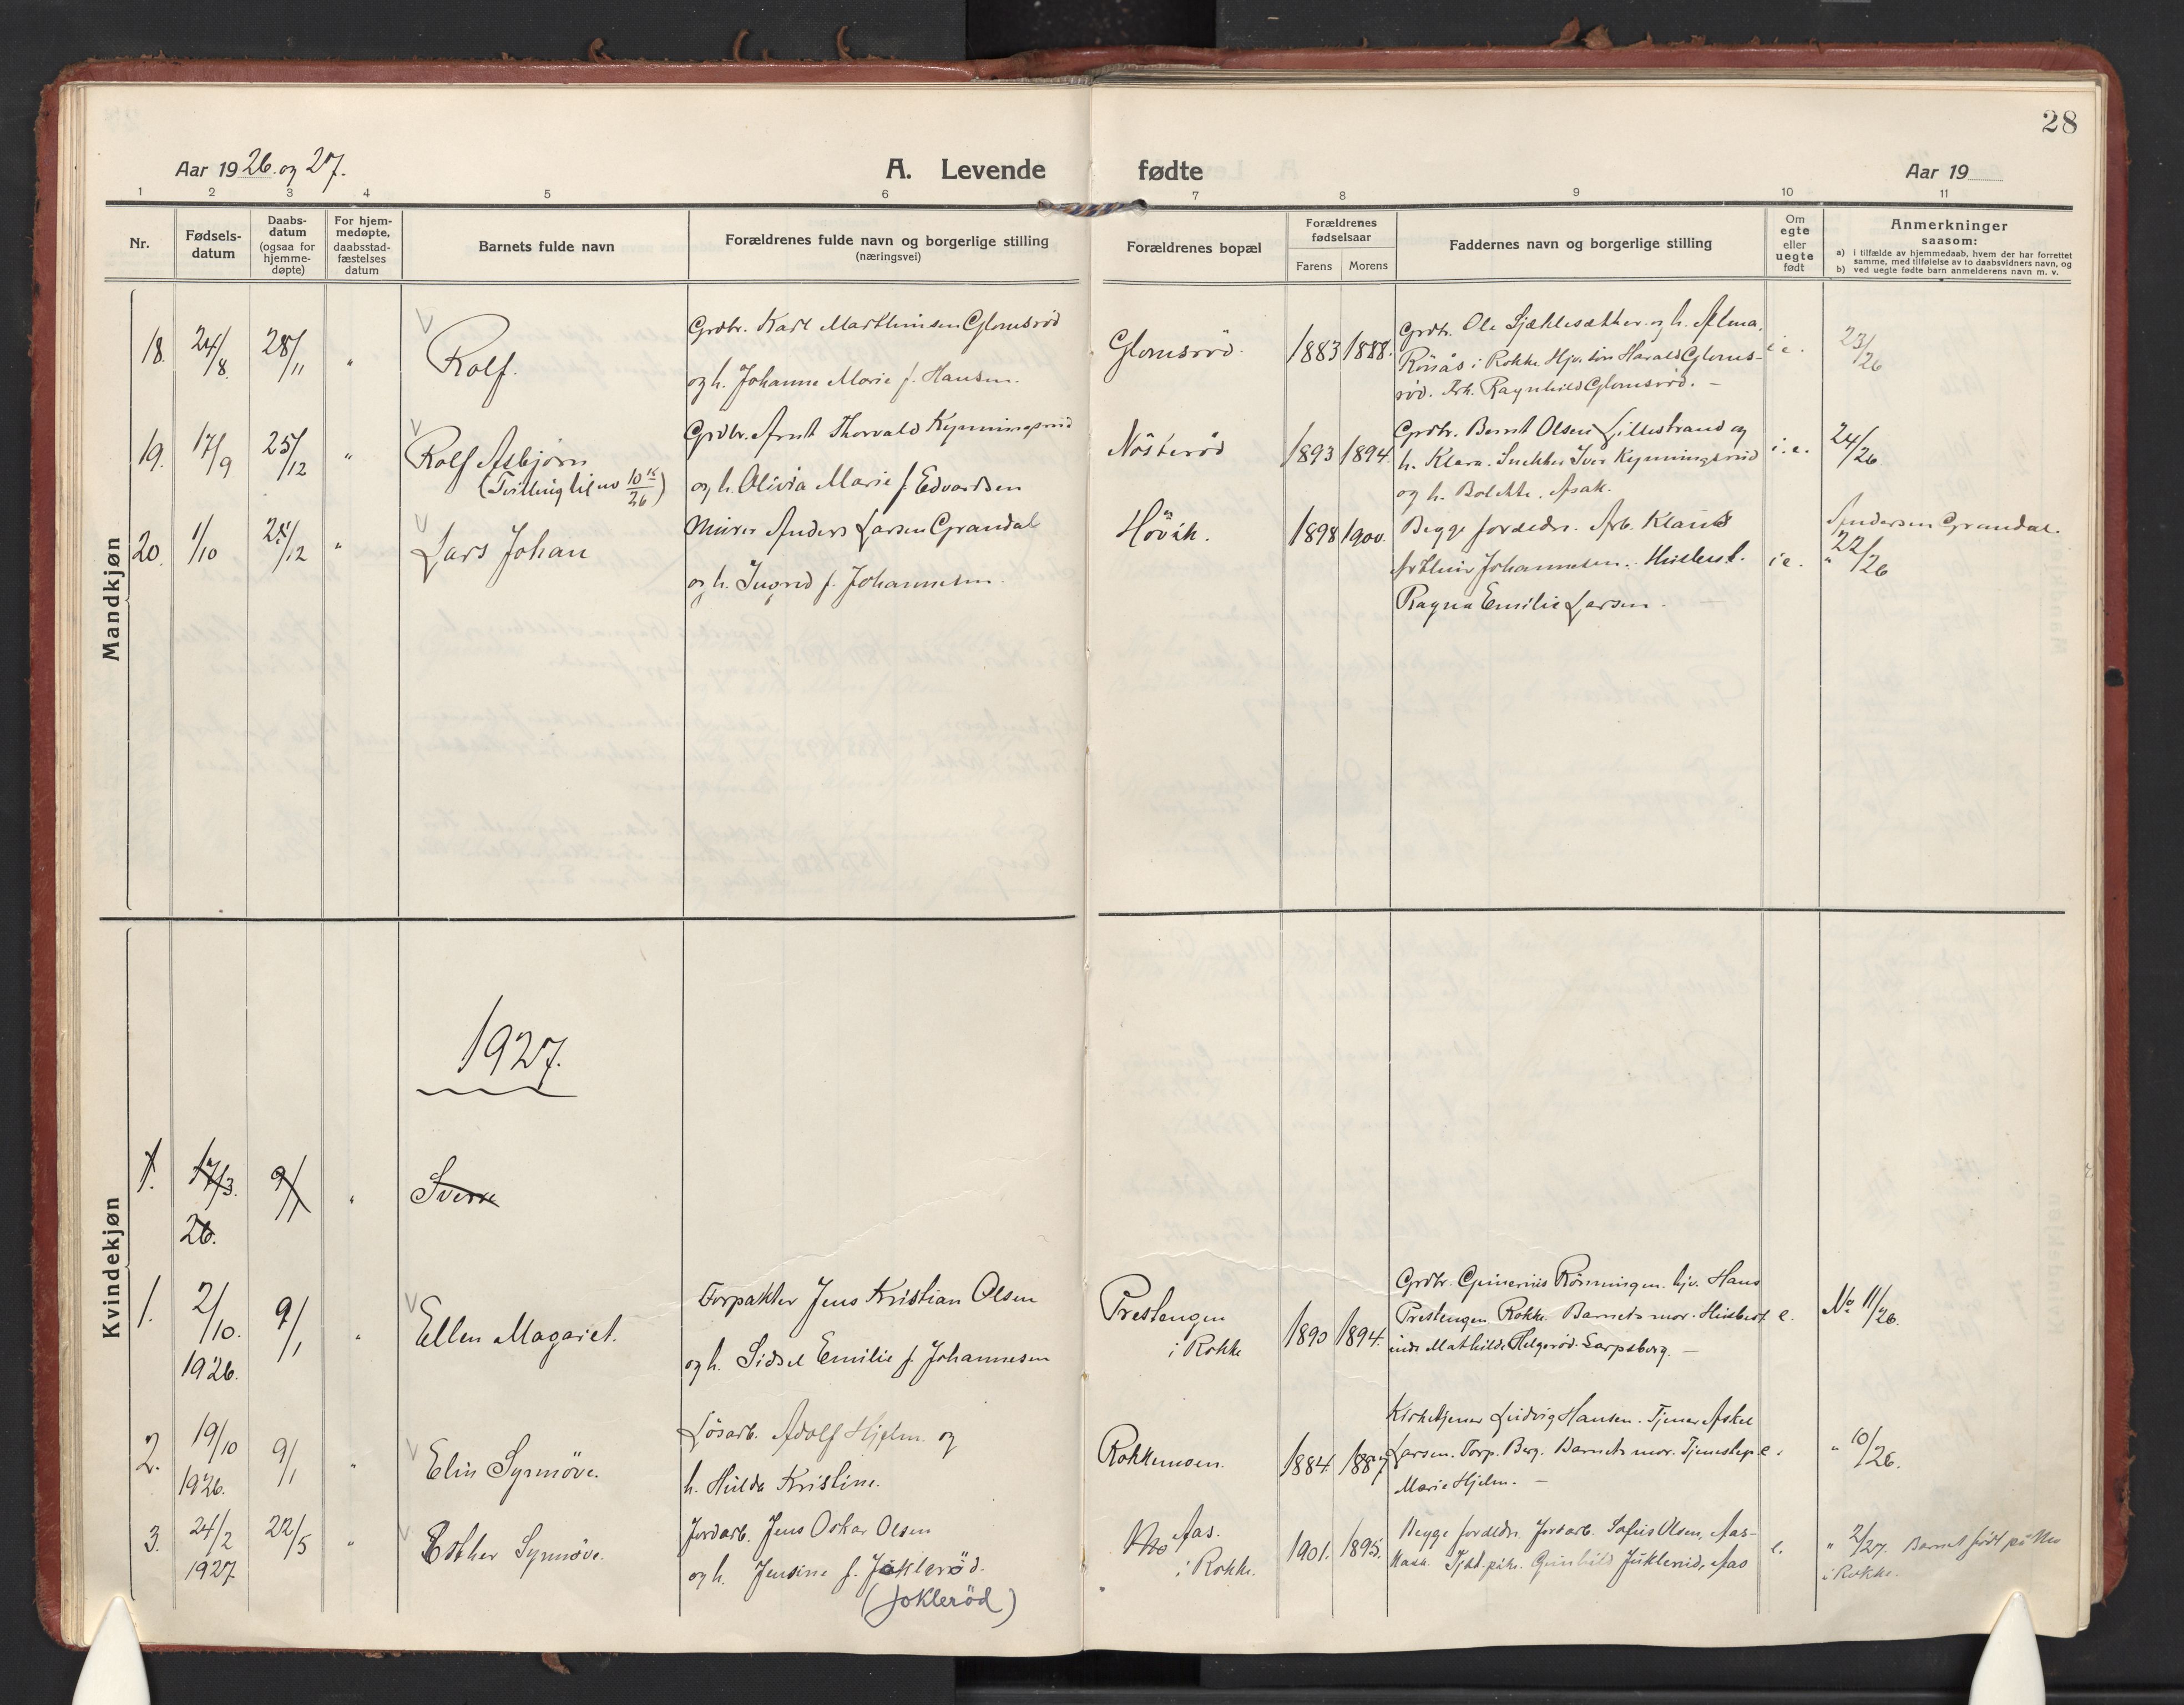 28
Aar 1926. og 27.
A. Levende fødte
Aar 19
1 2 3 4 5 6 7 8 9 10 11
Nr.
Fødsels-
datum
Daabs-
datum
(ogsaa for
hjemme-
døpte)
For hjem-
medøpte,
daabsstad-
fæstelses
datum
Barnets fulde navn
Forældrenes fulde navn og borgerlige stilling
(næringsvei)
Forældrenes bopæl
Forældrenes
fødselsaar
Farens Morens
Faddernes navn og borgerlige stilling
Om
egte
eller
uegte
født
Anmerkninger
saasom:
a) i tilfælde av hjemmedaab, hvem der har forrettet
samme, med tilføielse av to daabsvidners navn, og
b) ved uegte fødte barn anmelderens navn m. v.
Mandkjøn
18. 24/8. 28/11 "
Rolf.
Grdbr. Karl Marthinsen Glomsrød
og h. Johanne Marie f. Hansen.
Glomsrød.
1883 1888.
Grdbr. Ole Sjæklesæther og h. Alma.
Rönås i Rokke. Hjv. søn Harald Gloms-
rød. Arb. Ragnhild Glomsrød. —
i e.
23/26
19. 17/9 25/12 "
Rolf Asbjørn
(Tvilling til no 10 K/26)
Grdbr. Arnt Thorvald Kynningsrud
og h. Olivia Marie f. Edvardsen
Nösteröd
1893 1894.
Grdbr. Bernt Olsen Lillestrand og
h. Klara. Snekker Iver Kynningsrud
og h. Bolette. Asak.
i. e.
24/26
20. 1/10 25/12 "
Lars Johan
Murer Anders Larsen Grandal
og h. Ingrid f. Johannesen.
Hövik.
1898 1900.
Begge foreldre. Arb. Klaus
Arthur Johannesen. Husbest.
Ragna Emilie Larsen. —
i e.
Andersen Grandal.
" 22/26
Kvindekjøn
1927.
1. 17/3. 26. 9/1 "
Sverre
1. 2/10. 1926. 9/1 "
Ellen Magaret.
Forpakter Jens Kristian Olsen
og h. Sidsel Emilie f. Johannesen
Prestengen
i Rokke
1890 1894.
Grdbr. Gunerius Rönningen. hjv. Hans
Prestengen Rokke. Barnets mor. Husbest.
inde Mathilde Helgerød. Sarpsborg. —
e.
No 11/26.
2. 19/10 1926. 9/1 "
Elin Synnöve.
Lösarb. Adolf Hjelm og
h. Hulda Kristine.
Rokkemoen.
1884. 1887
Kirketjener Ludvig Hansen. Tjener Askel
Larsen. Torp. Berg. Barnets mor. Tjenestep.
Marie Hjelm. —
e.
" 10/26.
3. 24/2 1927 22/5 "
Esther Synnöve.
Jordarb. Jens Oskar Olsen
og h. Jensine f. Joklerød.
(Joklerød)
Mo Aas.
i Rokke.
1901. 1895.
Begge foreldre. Jordarb. Sofus Olsen, Aas-
Tjst.pike. Gunhild Juklerud, Aas
e.
" 2/27. Barnet født på Mo
i Rokke.